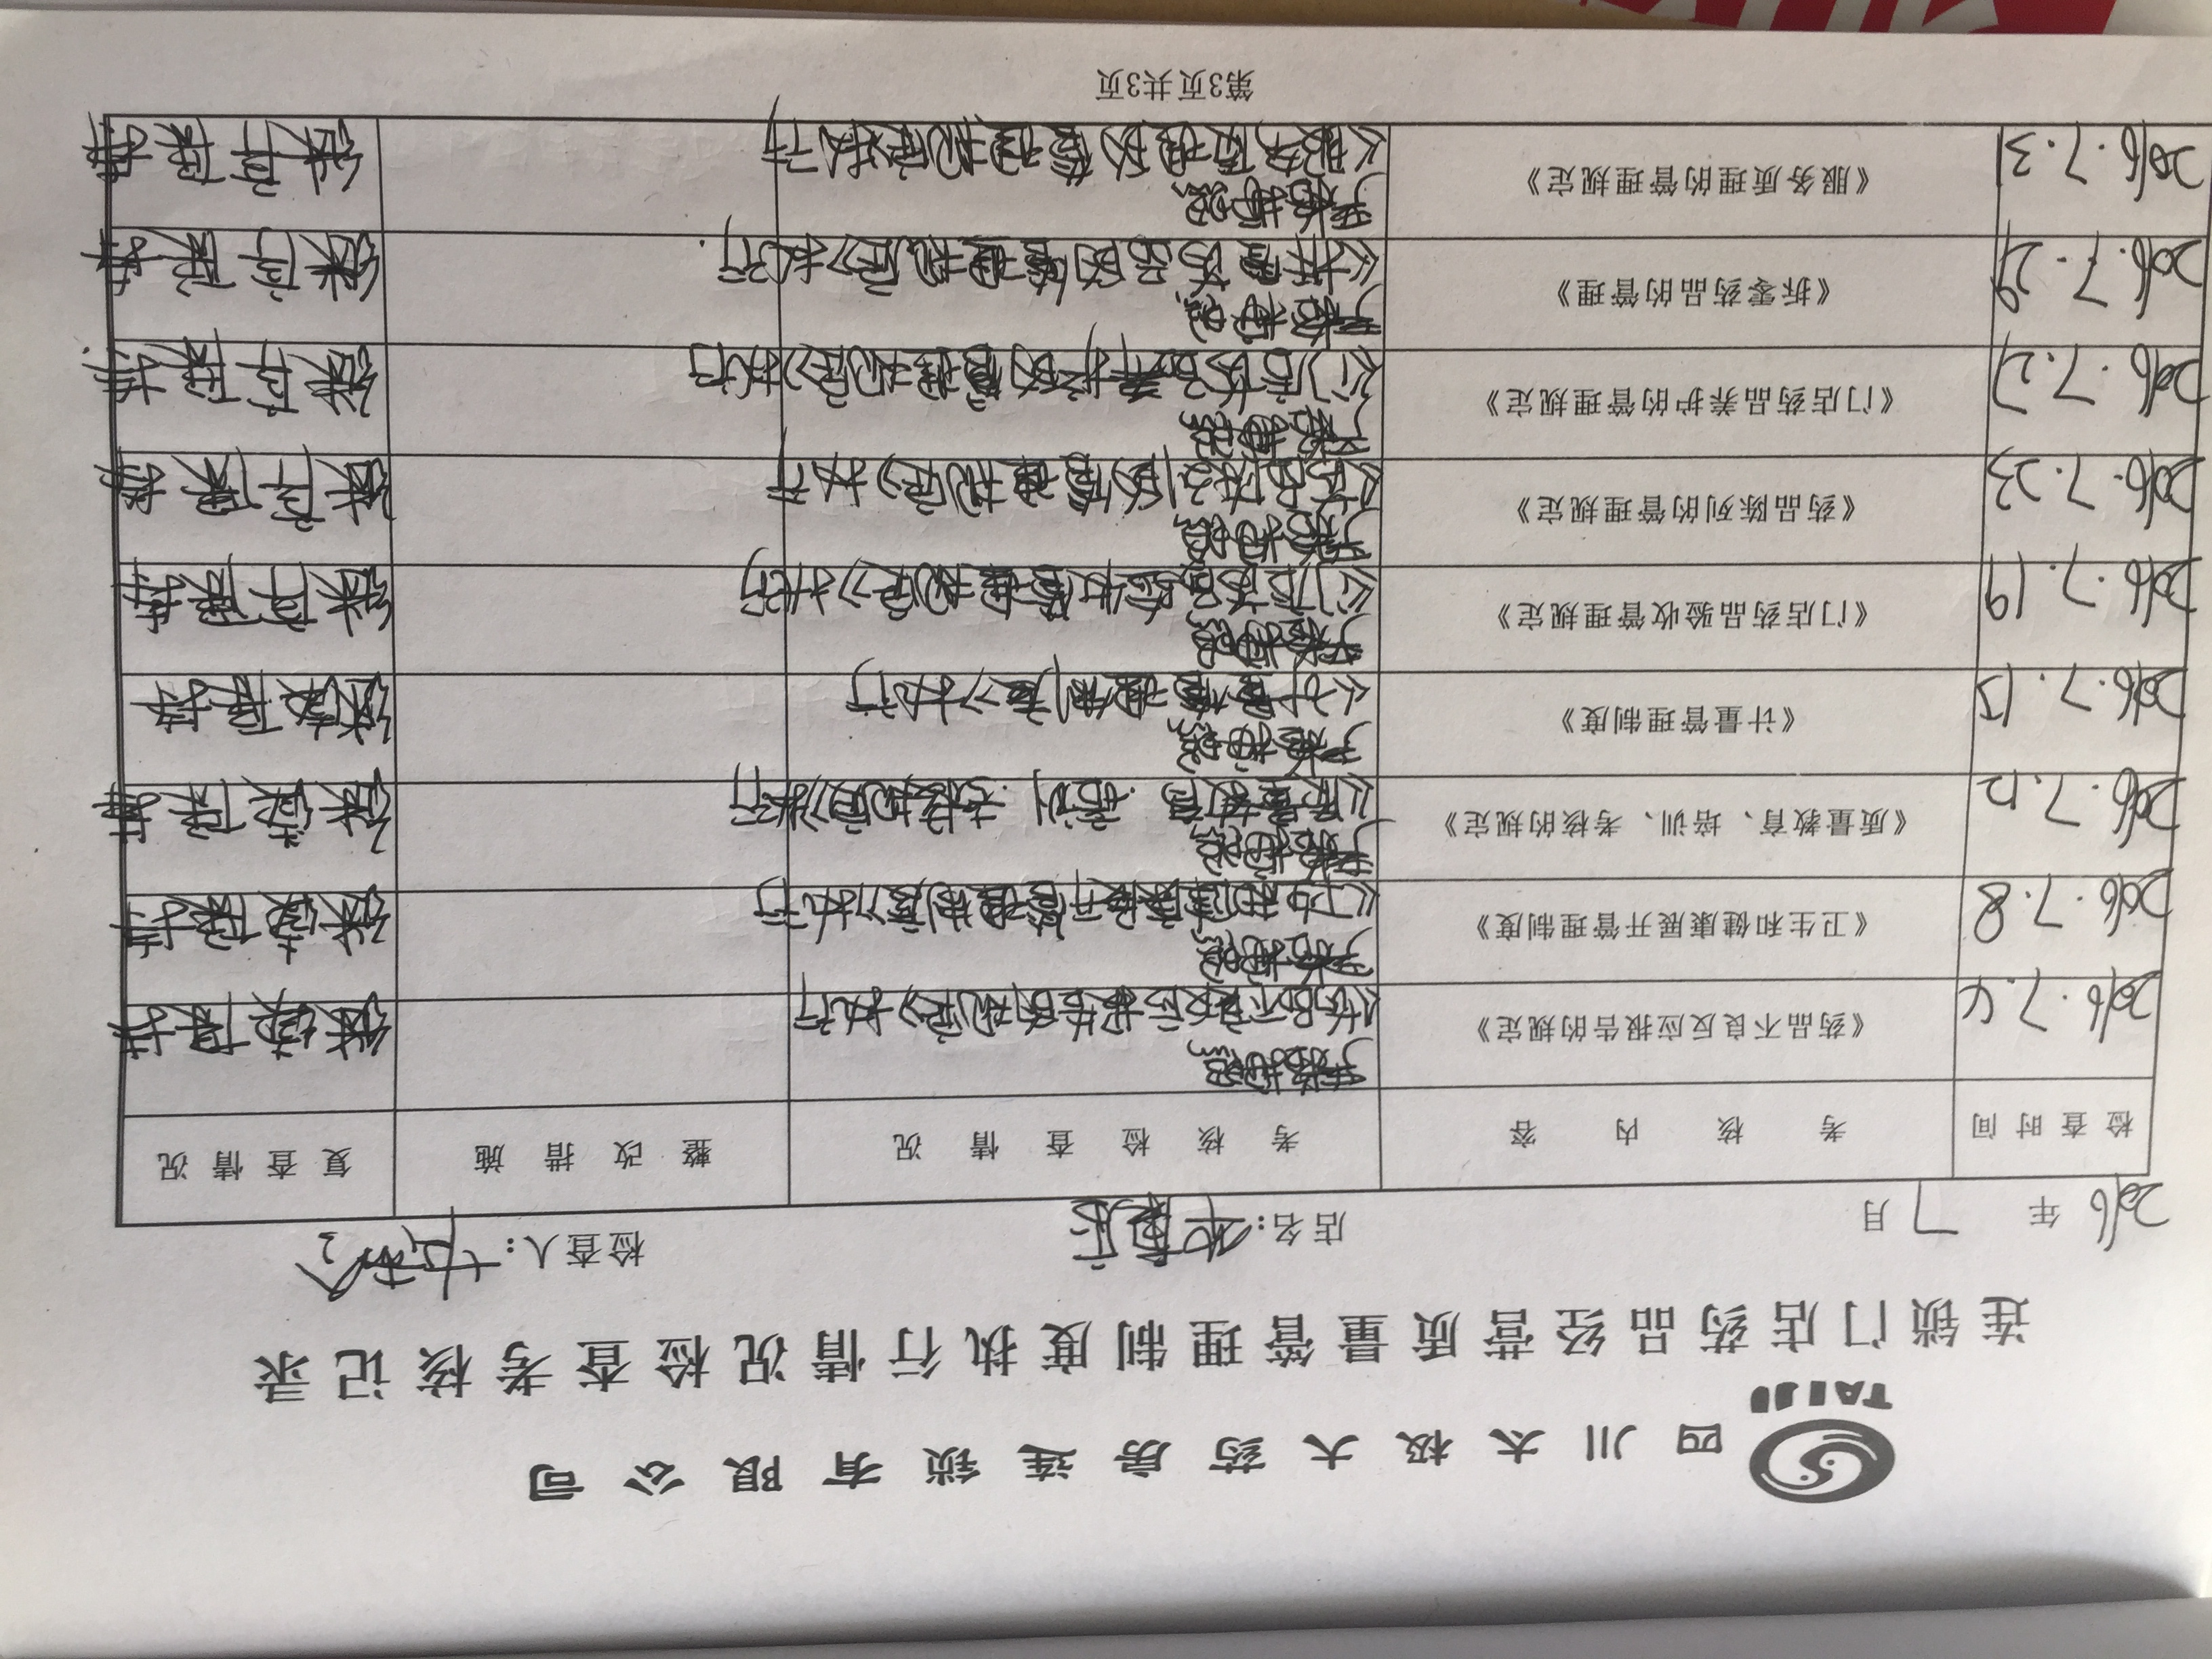 TAIJI
四川太极大药房连锁有限公司
连锁门店药品经营质量管理制度执行情况检查考核记录
2016年 7月 店名: 检查人:
检查时间 考核内容 考核检查情况 整改措施 复查情况
2016.7.4 《药品不良反应报告的规定》 严格按照《药品不良反应报告的规定》执行 继续保持
2016.7.8 《卫生和健康展开管理制度》 严格按照《卫生和健康展开管理制度》执行 继续保持
2016.7.12 《质量教育、培训、考核的规定》 严格按照《质量教育.培训.考核规定》执行 继续保持
2016.7.15 《计量管理制度》 严格按照《计量管理制度》执行 继续保持
2016.7.19 《门店药品验收管理规定》 严格按照《门店药品验收管理规定》执行 继续保持
2016.7.23 《药品陈列的管理规定》 严格按照《药品陈列的管理规定》执行 继续保持
2016.7.27 《门店药品养护的管理规定》 严格按照《门店药品养护的管理规定》执行 继续保持
2016.7.29 《拆零药品的管理》 严格按照《拆零药品的管理规定》执行 继续保持
2016.7.31 《服务质理的管理规定》 严格按照《服务质理的管理规定》执行 继续保持
第3页共3页